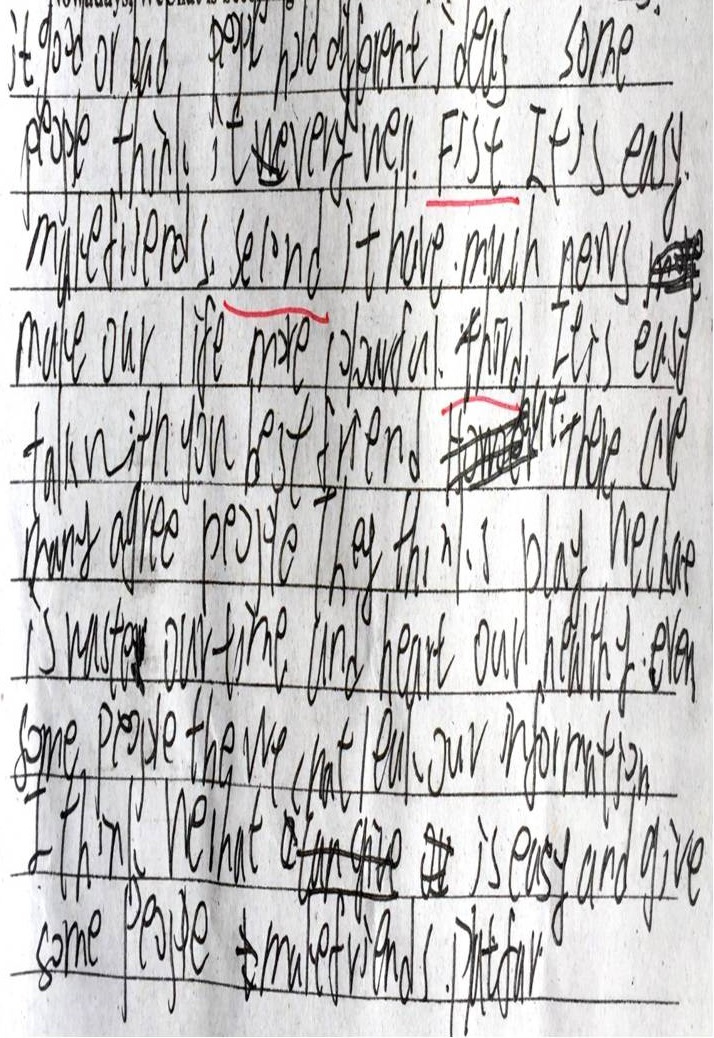 it good or bad people hold different ideas some
people think it very well. Fist It is easy.
make friends. second it have much news
make our life more colourful. third, It is easy
talk with you best friend but there are
many agree people They think play Wechat
is waste our time and heart our healthy. even
some people the Wechat leak our information
I think Wechat is easy and give
some people to make friends.